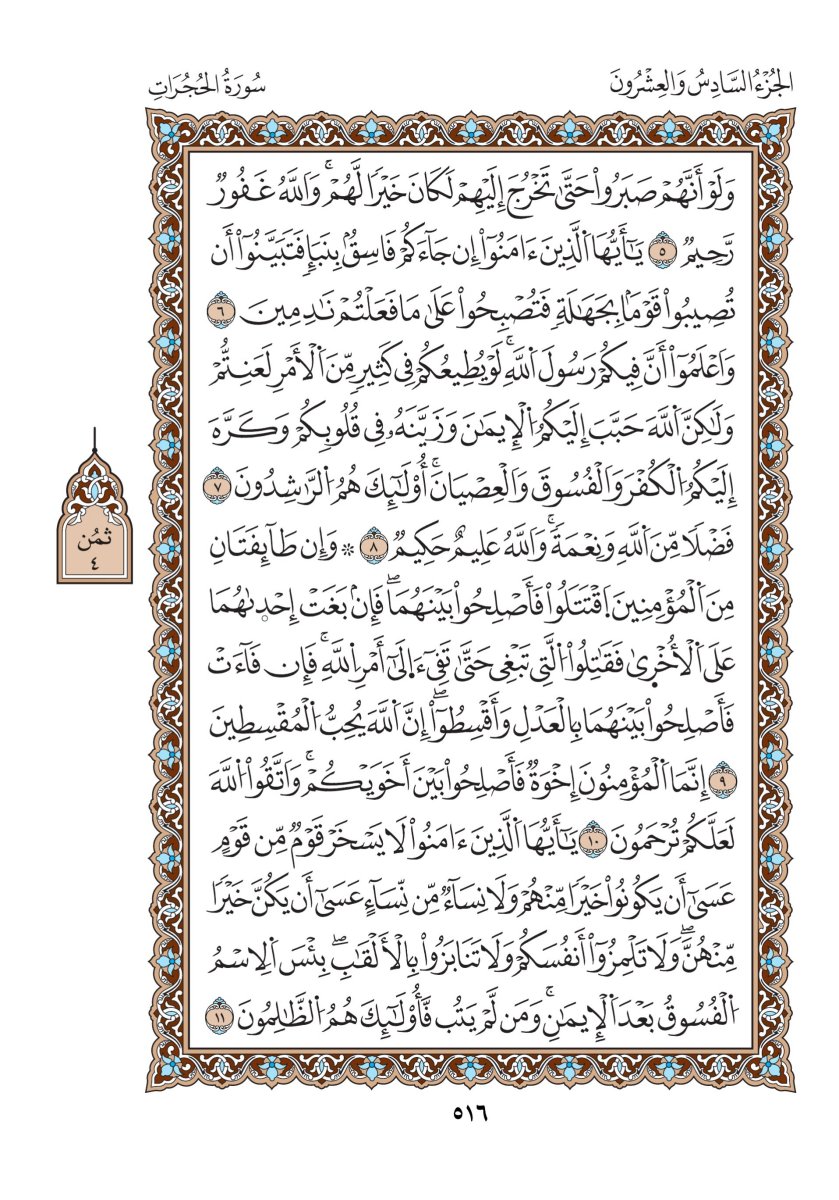 الجُزْءُ السَّادِسُ وَالعِشْرُونَ
سُورَةُ الحُجُرَاتِ
وَلَوْ أَنَّهُمْ صَبَرُواْ حَتَّىٰ تَخْرُجَ إِلَيْهِمْ لَكَانَ خَيْرٗا لَّهُمْۚ وَاللَّهُ غَفُورٞ
رَّحِيمٞ ٥ يَٰٓأَيُّهَا اَلَّذِينَ ءَامَنُوٓاْ إِن جَآءَكُمْ فَاسِقُۢ بِنَبَإٖ فَتَبَيَّنُوٓاْ أَن
تُصِيبُواْ قَوْمَۢا بِجَهَٰلَةٖ فَتُصْبِحُواْ عَلَىٰ مَا فَعَلْتُمْ نَٰدِمِينَ ٦
وَاَعْلَمُوٓاْ أَنَّ فِيكُمْ رَسُولَ اَللَّهِۚ لَوْ يُطِيعُكُمْ فِي كَثِيرٖ مِّنَ اَلْأَمْرِ لَعَنِتُّمْ
وَلَٰكِنَّ اَللَّهَ حَبَّبَ إِلَيْكُمُ اُلْإِيمَٰنَ وَزَيَّنَهُۥ فِي قُلُوبِكُمْ وَكَرَّهَ
إِلَيْكُمُ اُلْكُفْرَ وَالْفُسُوقَ وَالْعِصْيَانَۚ أُوْلَٰٓئِكَ هُمُ اُلرَّٰشِدُونَ ٧
فَضْلٗا مِّنَ اَللَّهِ وَنِعْمَةٗۚ وَاللَّهُ عَلِيمٌ حَكِيمٞ ٨ ۞ وَإِن طَآئِفَتَانِ
مِنَ اَلْمُؤْمِنِينَ اَقْتَتَلُواْ فَأَصْلِحُواْ بَيْنَهُمَاۖ فَإِنۢ بَغَتْ إِحْدَىٰهُمَا
عَلَى اَلْأُخْرَىٰ فَقَٰتِلُواْ اُلَّتِي تَبْغِي حَتَّىٰ تَفِيٓءَ اِلَىٰٓ أَمْرِ اِللَّهِۚ فَإِن فَآءَتْ
فَأَصْلِحُواْ بَيْنَهُمَا بِالْعَدْلِ وَأَقْسِطُوٓاْۖ إِنَّ اَللَّهَ يُحِبُّ اُلْمُقْسِطِينَ
٩ إِنَّمَا اَلْمُؤْمِنُونَ إِخْوَةٞ فَأَصْلِحُواْ بَيْنَ أَخَوَيْكُمْۚ وَاتَّقُواْ اُللَّهَ
لَعَلَّكُمْ تُرْحَمُونَ ١٠ يَٰٓأَيُّهَا اَلَّذِينَ ءَامَنُواْ لَا يَسْخَرْ قَوْمٞ مِّن قَوْمٍ
عَسَىٰٓ أَن يَكُونُواْ خَيْرٗا مِّنْهُمْ وَلَا نِسَآءٞ مِّن نِّسَآءٍ عَسَىٰٓ أَن يَكُنَّ خَيْرٗا
مِّنْهُنَّۖ وَلَا تَلْمِزُوٓاْ أَنفُسَكُمْ وَلَا تَنَابَزُواْ بِالْأَلْقَٰبِۖ بِئْسَ اَلِاسْمُ
اُلْفُسُوقُ بَعْدَ اَلْإِيمَٰنِۚ وَمَن لَّمْ يَتُب فَّأُوْلَٰٓئِكَ هُمُ اُلظَّٰلِمُونَ ١١
ثُمُن
٤
٥١٦